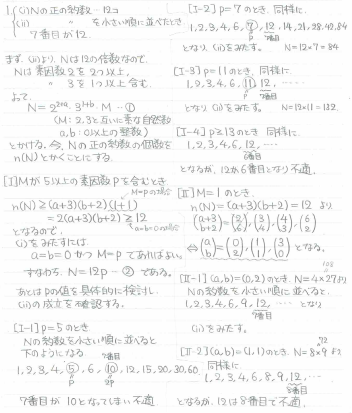 1. (i) Nの正の約数…12コ
(ii) 〃 を小さい順に並べたとき
7番目が12.
まず、(ii)より、Nは12の倍数なので、
Nは素因数2を2つ以上,
〃 3を1つ以上含む.
よって、
N = 2^{2+a}・3^{1+b}・M … ①
(M:2,3と互いに素な自然数
a,b:0以上の整数)
とかける. 今、Nの正の約数の個数を
n(N)とかくことにする.
[I] Mが5以上の素因数pを含むとき
M=pの場合
n(N) ≧ (a+3)(b+2)(1+1)
= 2(a+3)(b+2) ≧ 12
a=b=0の場合
となるので、
(i)をみたすには
a=b=0かつM=pであればよい.
すなわち、N=12p - ② である.
あとはpの値を具体的に検討し
(ii)の成立を確認する.
[I-1] p=5のとき
Nの約数を小さい順に並べると
下のようになる. 7番目
1, 2, 3, 4, 5, 6, 10, 12, 15, 20, 30, 60
p 2p
7番目が10となってしまい不適
[I-2] p=7のとき, 同様に,
7番目
1, 2, 3, 4, 6, 7, 12, 14, 21, 28, 42, 84
p
となり, (ii)をみたす. N=12×7=84
[I-3] p=11のとき, 同様に,
1, 2, 3, 4, 6, 11, 12, ……
p 7番目
となり (ii)をみたす. N=12×11=132
[I-4] p≧13のとき, 同様に,
1, 2, 3, 4, 6, 12, …
6番目
となるが、12が6番目となり不適.
[II] M=1のとき.
n(N) = (a+3)(b+2) = 12 より
(a+3 b+2) = (2 6), (3 4), (4 3), (6 2)
⇔ (a b) = (0 2), (1 1), (3 0) となる。
[II-1] (a,b)=(0,2)のとき. N=4×27より
108
Nの約数を小さい順に並べると.
1, 2, 3, 4, 6, 9, 12, … となり
7番目
(ii)をみたす.
[II-2] (a,b)=(1,1)のとき. N=8×9より
72
1, 2, 3, 4, 6, 8, 9, 12, …
8番目
となるが、12は8番目で不適.